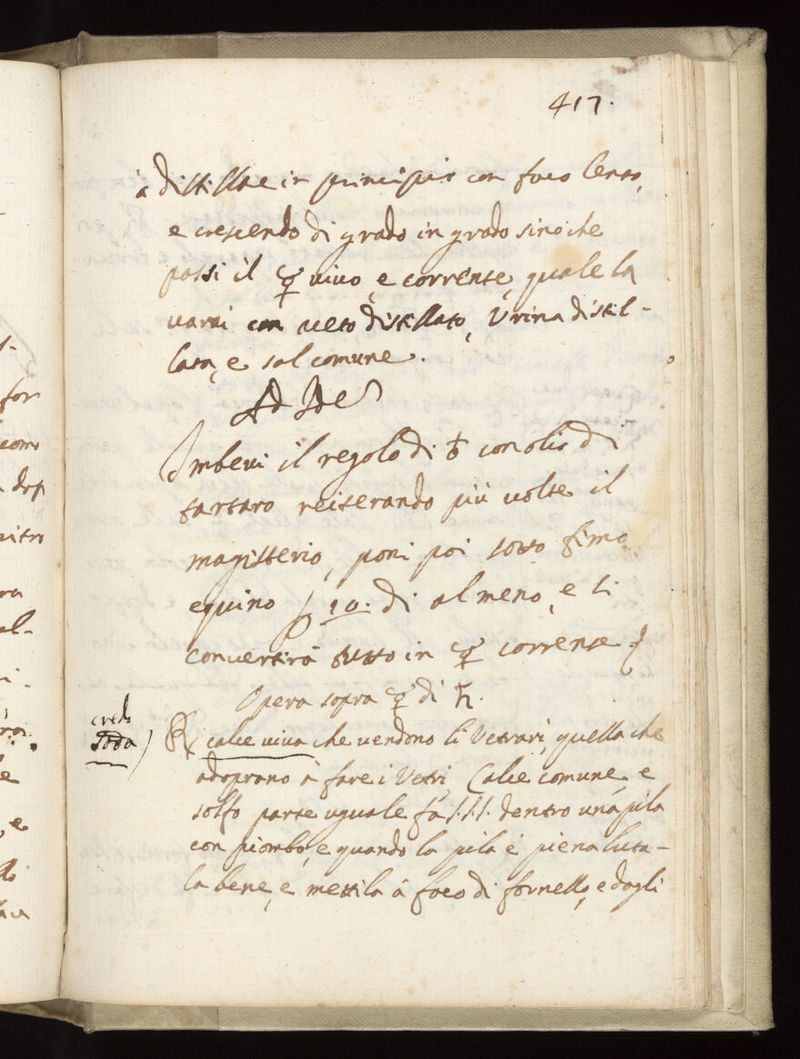 417.
à distillare in principio con foco lento,
e crescendo di grado in grado sino che
passi il ☿ vivo, e corrente, quale la
varai con aceto distillato, Urina distil-
lata, e sal comune.
Ad Idem
Imbevi il regolo di ♁ con olio di
tartaro reiterando più volte il
magisterio, poni poi sotto fimo
equino p 40. di almeno, e si
convertirà tutto in ☿ corrente.
Opera sopra ☿ di ♄.
credo
soda
℞ calce viva che vendono li Vetrari, quella che
adoprano à fare i Vetri, Calce comune, e
solfo parte uguale fà s.s.s. dentro una pila
con piombo, e quando la pila è piena luta-
la bene, e mettila à foco di fornello, e dagli